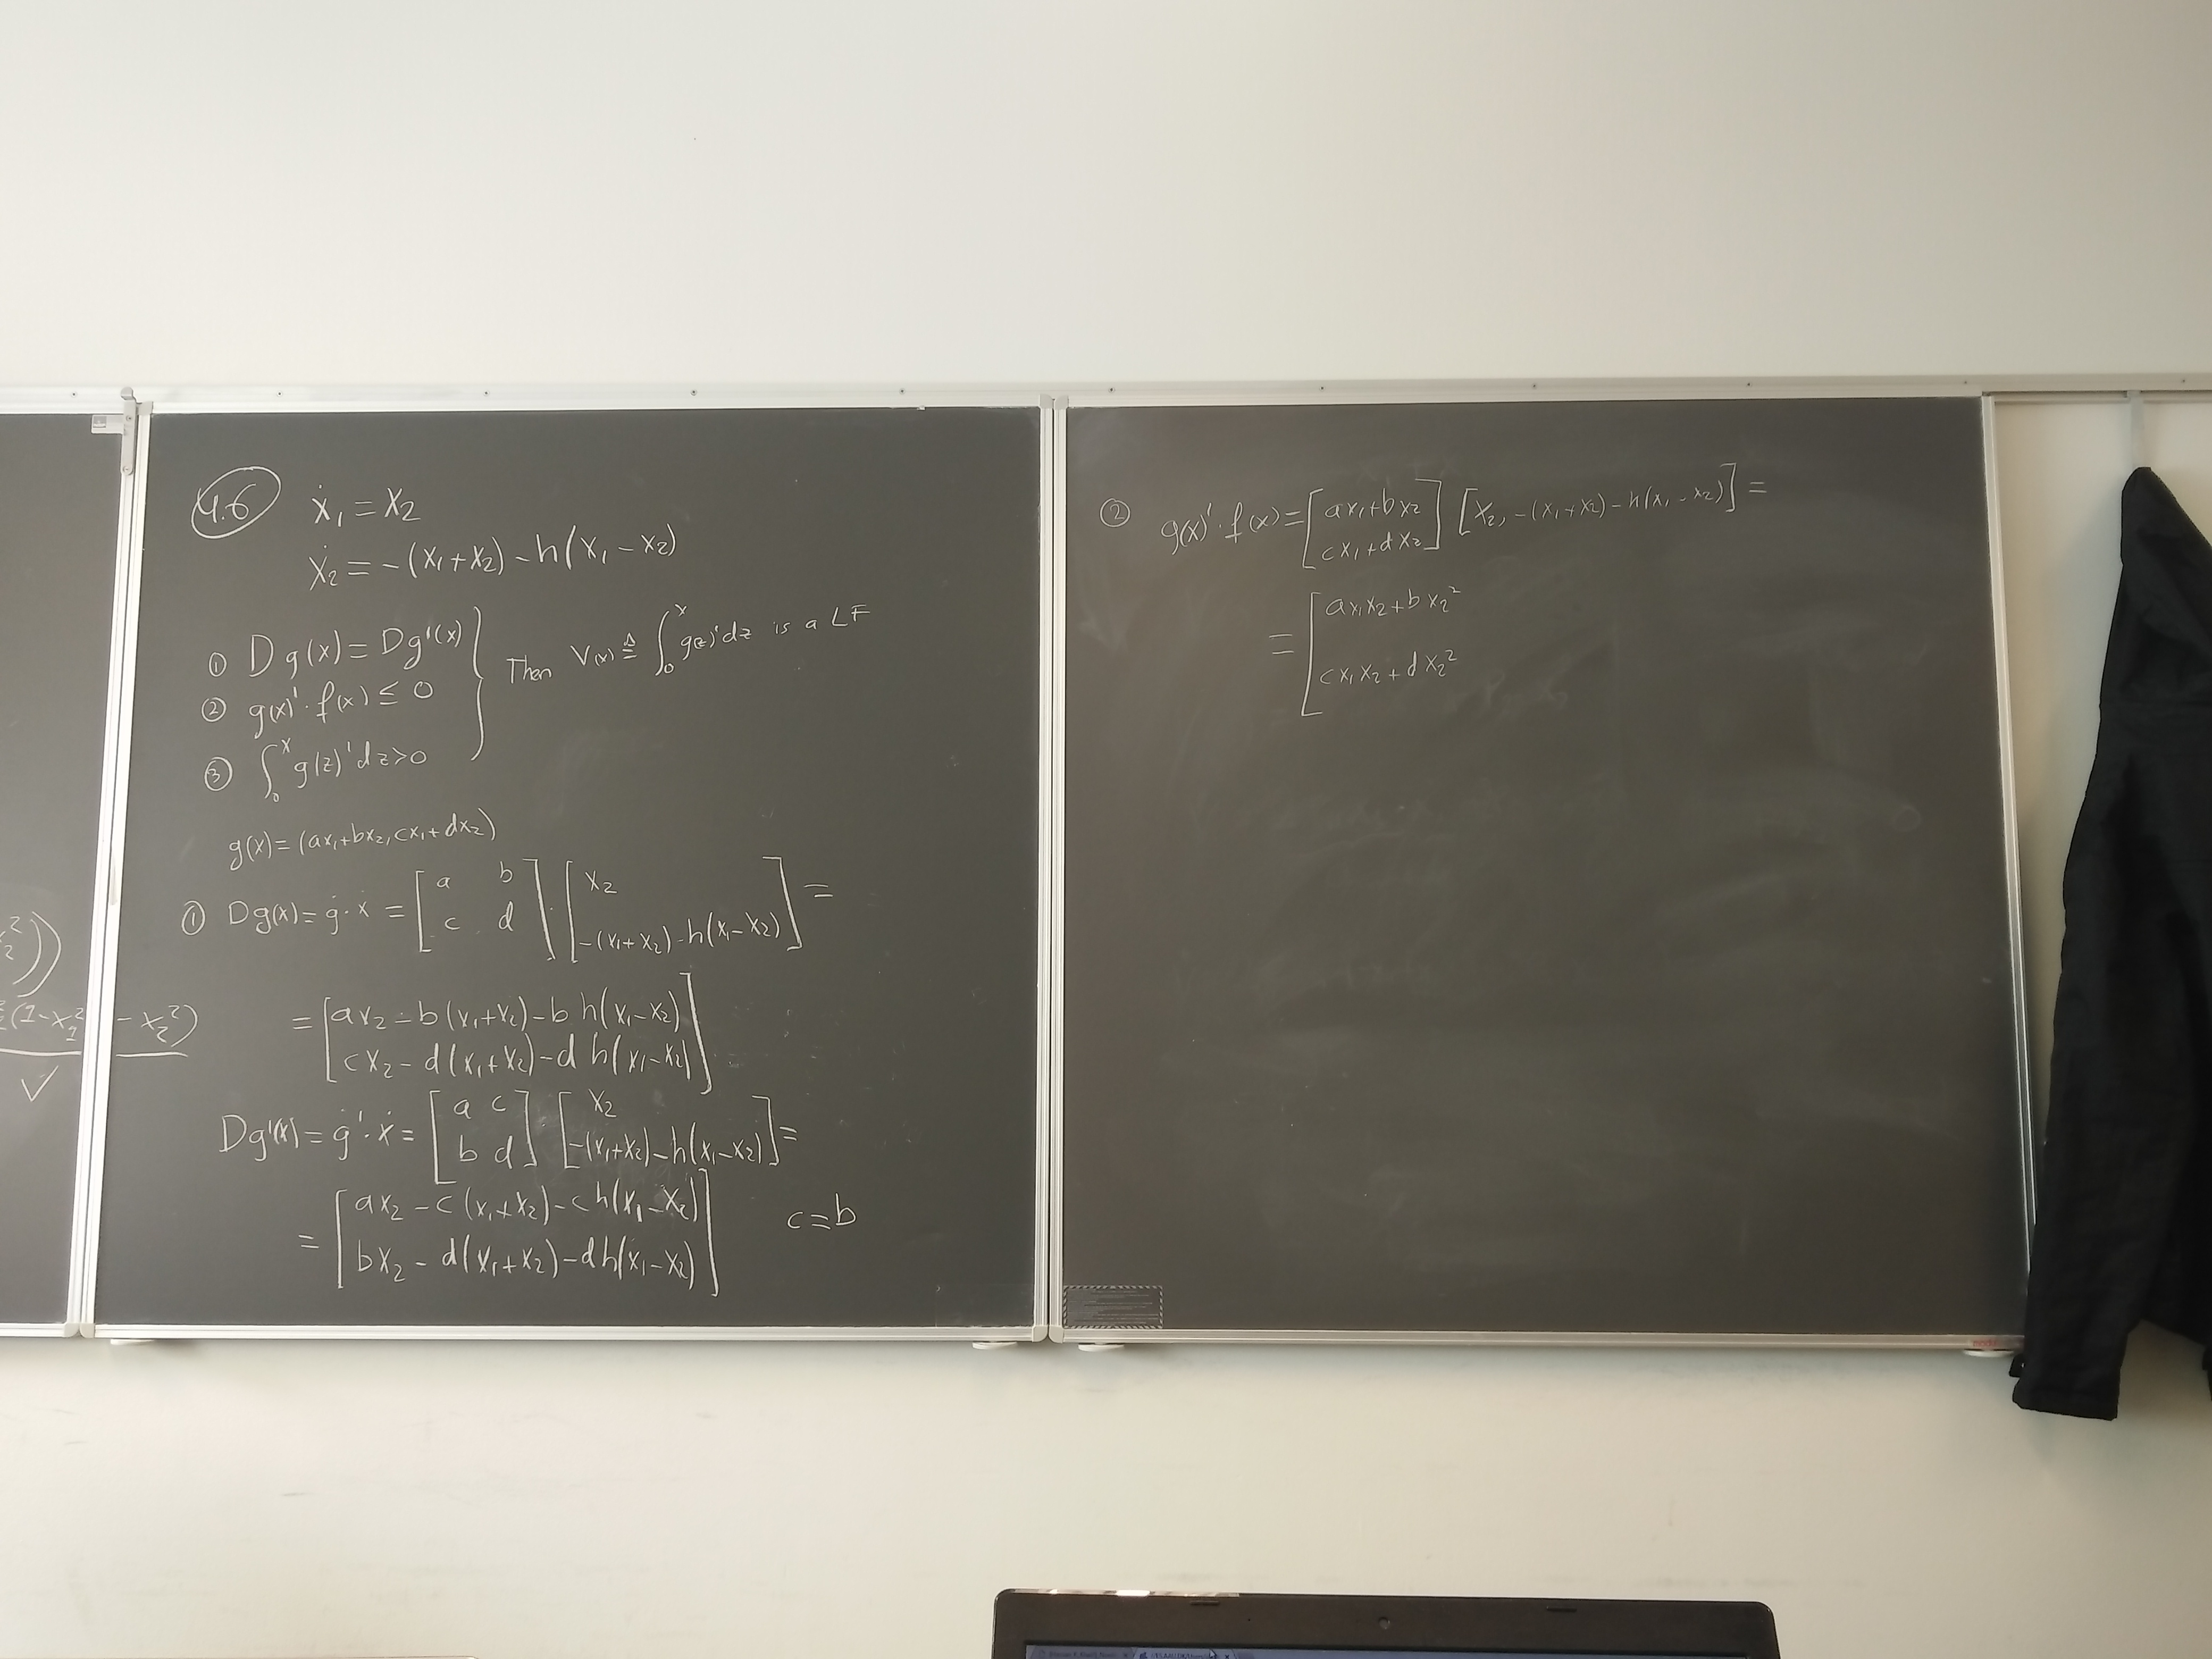 x₂²))
(1-x₁²-x₂²)
✓
4.6 ẋ₁ = x₂
ẋ₂ = -(x₁+x₂) - h(x₁-x₂)
① Dg(x) = Dg'(x)
② g(x)'·f(x) ≤ 0
③ ∫₀ˣ g(z)'dz>0
} Then V(x) ≜ ∫₀ˣ g(z)'dz is a LF
g(x) = (ax₁+bx₂, cx₁+dx₂)
① Dg(x) = ġ·ẋ = [a b; c d]·[x₂; -(x₁+x₂)-h(x₁-x₂)] =
= [ax₂-b(x₁+x₂)-b h(x₁-x₂); cx₂-d(x₁+x₂)-d h(x₁-x₂)]
Dg'(x) = ġ'·ẋ = [a c; b d] [x₂; -(x₁+x₂)-h(x₁-x₂)] =
= [ax₂-c(x₁+x₂)-ch(x₁-x₂); bx₂-d(x₁+x₂)-dh(x₁-x₂)] c=b
② g(x)'·f(x) = [ax₁+bx₂; cx₁+dx₂] [x₂, -(x₁+x₂)-h(x₁-x₂)] =
= [ax₁x₂+bx₂²; cx₁x₂+dx₂²